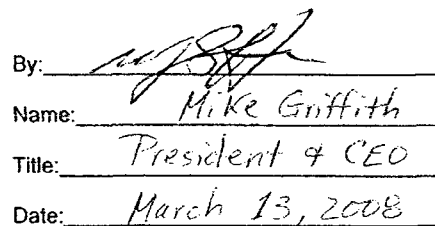 By:
Name: Mike Griffith
Title: President & CEO
Date: March 13, 2008